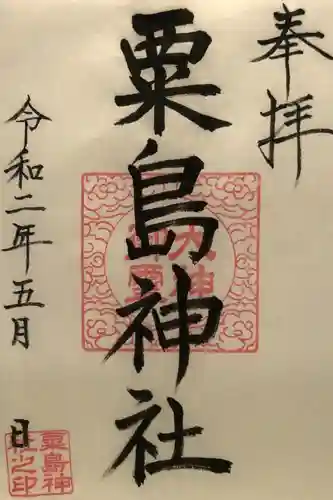 奉拝
粟島神社
令和二年五月 日
粟島神社之印